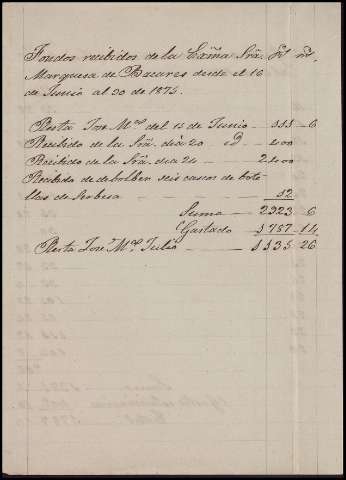 Fondos recibidos de la Exma Sra.
Marquesa de Bacares desde el 16
de Junio al 30 de 1875.
Resta Jose Ml. del 15 de Junio — 111 — 6
Recibido de la Sra. dia 20 — id — 400
Recibido de la Sra dia 24 — 2400
Recibido de debolber seis cascos de bote-
llas de Serbesa — — 12
Suma — 2923 — 6
Gastado — 1787 — 14
Resta Jose Ml. Julio — 1135 — 26